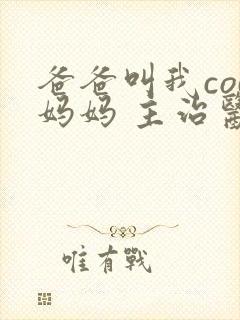 爸爸叫我co
妈妈 主治
唯有戰